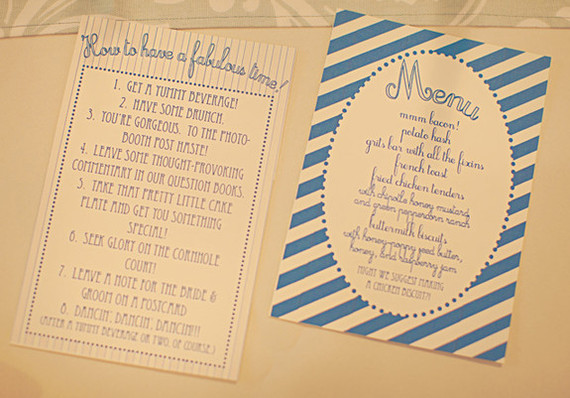 How to have a fabulous time!
1. GET A YUMMY BEVERAGE!
2. HAVE SOME BRUNCH.
3. YOU'RE GORGEOUS. TO THE PHOTO-
BOOTH POST HASTE!
4. LEAVE SOME THOUGHT-PROVOKING
COMMENTARY IN OUR QUESTION BOOKS.
5. TAKE THAT PRETTY LITTLE CAKE
PLATE AND GET YOU SOMETHING
SPECIAL!
6. SEEK GLORY ON THE CORNHOLE
COURT!
7. LEAVE A NOTE FOR THE BRIDE &
GROOM ON A POSTCARD
8. DANCIN', DANCIN', DANCIN'!!!
(AFTER A YUMMY BEVERAGE OR TWO, OF COURSE.)
Menu
mmm bacon!
potato hash
grits bar with all the fixins
french toast
fried chicken tenders
with chipotle honey mustard
and green peppercorn ranch
buttermilk biscuits
with honey-poppy seed butter,
honey, and raspberry jam
MIGHT WE SUGGEST MAKING
A CHICKEN BISCUIT?!